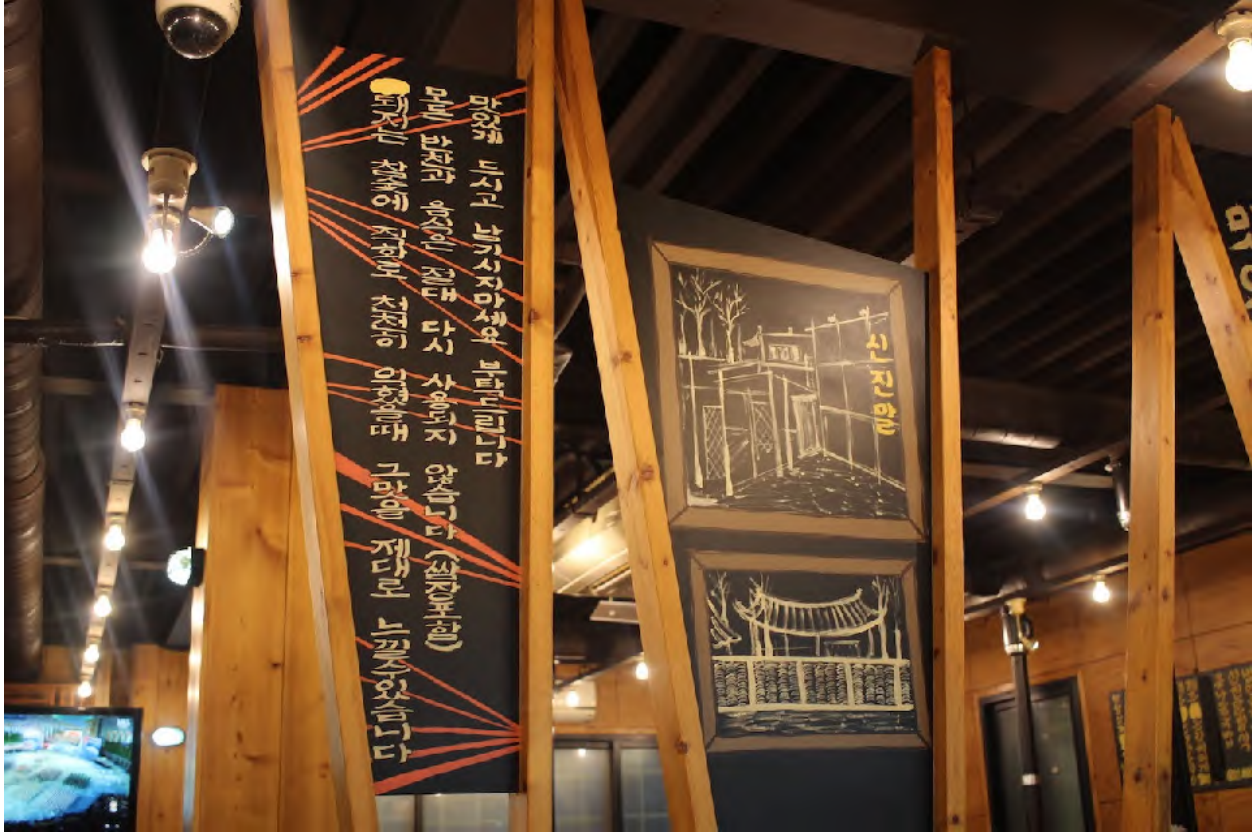 맛있게 드시고 남기시지마세요 부탁드립니다
모든 반찬과 음식은 절대 다시 사용되지 않습니다 (쌈장포함)
돼지는 참숯에 직화로 천천히 익혔을때 그맛을 제대로 느낄수있습니다
신진말